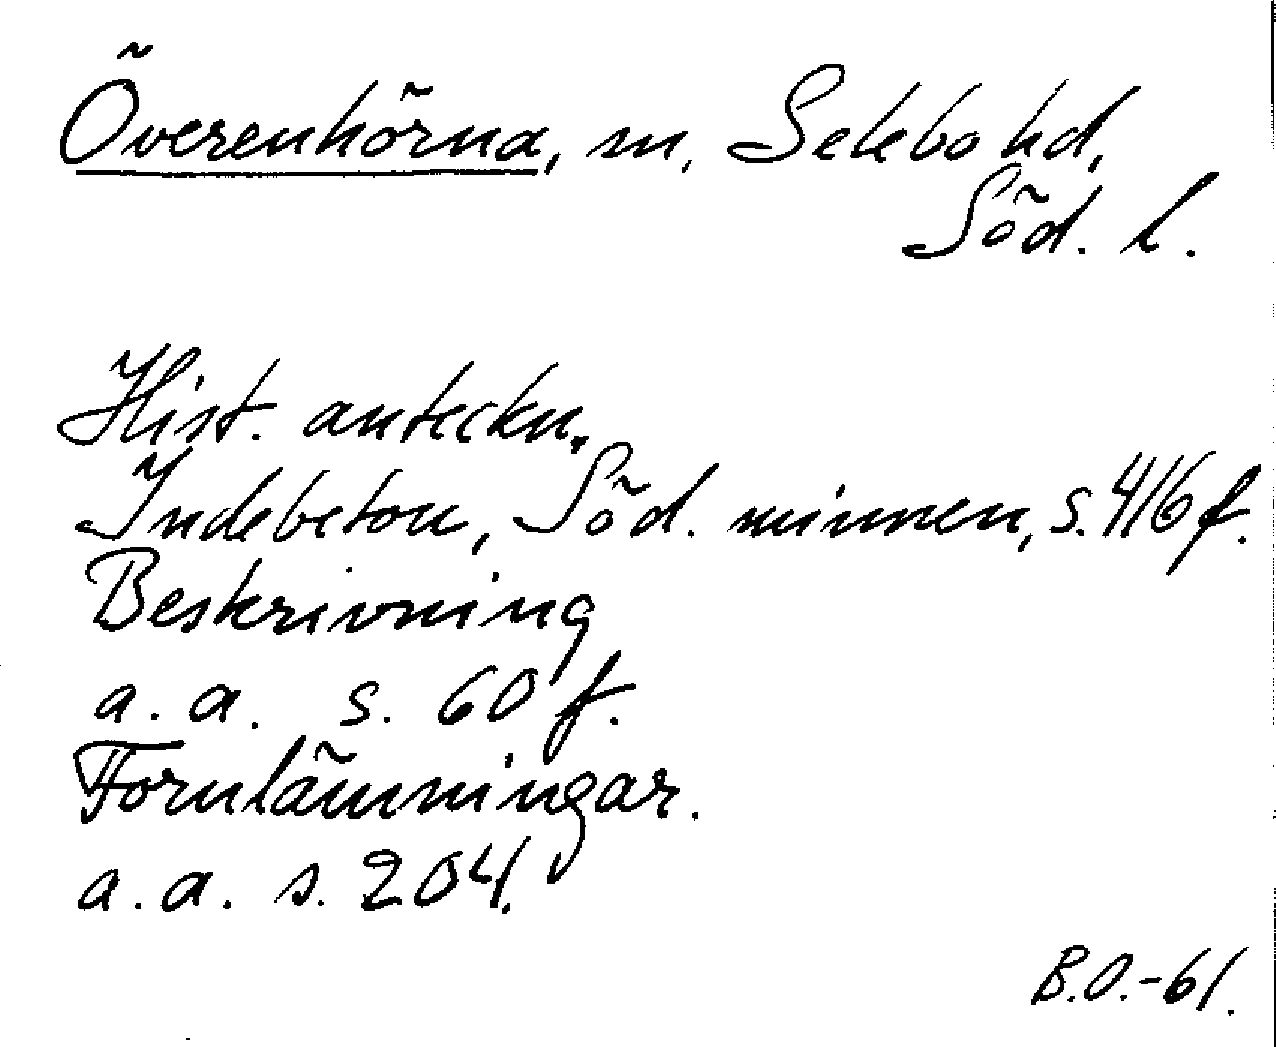 Överenhörna, sn, Selebo hd,
Söd. l.
Hist. anteckn.
Indebetou, Söd. minnen, s. 416 f.
Beskrivning
a. a. s. 60 f.
Fornlämningar.
a. a. s. 204.
B.O.-61.